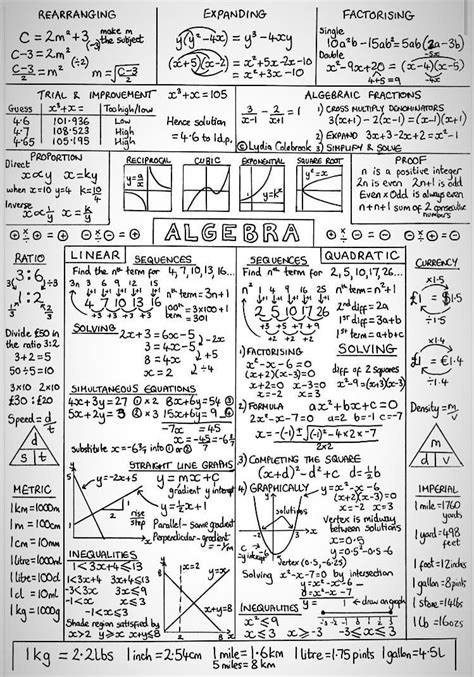 REARRANGING
C = 2m²+3
make m
the subject
C-3 = 2m²
(÷2)
C-3/2 = m²
m = √(C-3/2)
EXPANDING
y(y²-4x) = y³-4xy
(x+5)(x-2) = x²+5x-2x-10
= x²+3x-10
FACTORISING
Single
10a²b-15ab² = 5ab(2a-3b)
Double
x²-9x+20 = (x-4)(x-5)
4+5=9
TRIAL & IMPROVEMENT x³+x=105
Guess x³+x= Too high/low
4.6 101.936 Low
4.7 108.523 High
4.65 105.195 High
Hence solution
= 4.6 to 1d.p.
© Lydia Colebrook
ALGEBRAIC FRACTIONS
3/x-1 - 2/x+1 = 1
1) CROSS MULTIPLY DENOMINATORS
3(x+1)-2(x-1)=(x-1)(x+1)
2) EXPAND 3x+3-2x+2=x²-1
3) SIMPLIFY & SOLVE
PROPORTION
Direct
x∝y x=ky
when x=10 y=4 k=10/4
Inverse
x∝1/y x=k/y
RECIPROCAL
CUBIC
EXPONENTIAL
SQUARE ROOT
PROOF
n is a positive integer
2n is even 2n+1 is odd
Even × Odd is always even
n+n+1 sum of 2 consecutive
numbers
ALGEBRA
RATIO
3:6
1:2
Divide £50 in
the ratio 3:2
3+2=5
50÷5=10
3×10 2×10
£30 : £20
Speed = d/t
d
s t
METRIC
1km=1000m
1m=100cm
1cm=10mm
1litre=1000ml
1litre=100cl
1cl=10ml
1kg=1000g
LINEAR
SEQUENCES
Find the nth term for 4,7,10,13,16...
3n 3 6 9 12 15
4 7 10 13 16
+3 +3 +3 +3
nth term = 3n+1
100th = 3×100+1
term = 301
SOLVING
2x+3=6x-5
3=4x-5
8=4x
x=2
SIMULTANEOUS EQUATIONS
4x+3y=27 ①×2 8x+6y=54 ③
5x+2y=3 ②×3 15x+6y=9 ④
STRAIGHT LINE GRAPHS
y=-2x+5
y=mx+c
gradient y intercept
rise
step
Parallel - same gradient
INEQUALITIES
1<3x+4≤13
-3<3x
3x≤9
-1<x
x≤3
Shade region satisfied by
x>2 y≥x x+y≤8
y=x
x+y=8
QUADRATIC
SEQUENCES
Find the nth term for 2,5,10,17,26...
n² 1 4 9 16 25
2 5 10 17 26
+3 +5 +7 +9
2nd diff = 2a
1st diff = 3a+b
1st term = a+b+c
SOLVING
1) FACTORISING
x²-x-6=0
(x+2)(x-3)=0
x+2=0 x-3=0
x=-2 x=3
diff of 2 squares
x²-9=(x+3)(x-3)
2) FORMULA ax²+bx+c=0
2x²-x-7=0 a=2 b=-1 c=-7
3) COMPLETING THE SQUARE
(x+d)²-d²+c d=½b
4) GRAPHICALLY
y=x²-x-6
(x+2)(x-3)=0
x=-2 x=3
solutions
Vertex is midway
between solutions
x=0.5
y=0.5²-0.5-6
Vertex (0.5,-6.25)
Solving x²-x-7=0 by intersection
INEQUALITIES
draw graph
CURRENCY
×1.5
£1 = $1.5
÷1.5
×1.4
£1 = €1.4
÷1.4
Density = m/v
m
d v
IMPERIAL
1 mile=1760
yards
1 foot=12 inches
1 gallon=8 pints
1 stone=14lbs
1lb=16ozs
1kg = 2.2lbs 1 inch = 2.54cm 1 mile = 1.6km 1 litre = 1.75 pints 1 gallon = 4.5L
5 miles = 8km